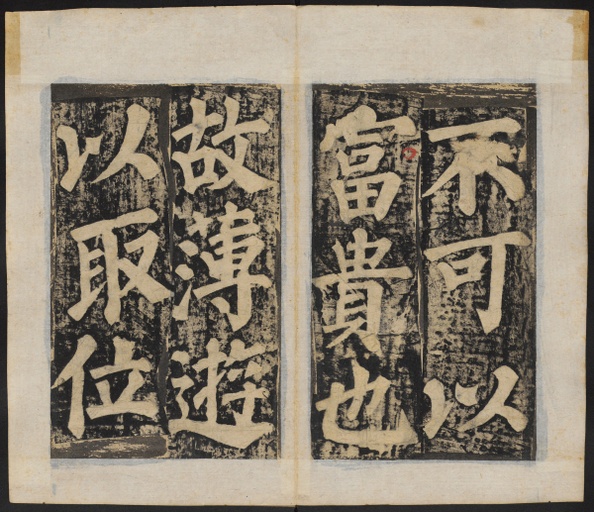 不可以
富貴也
故薄遊
以取位